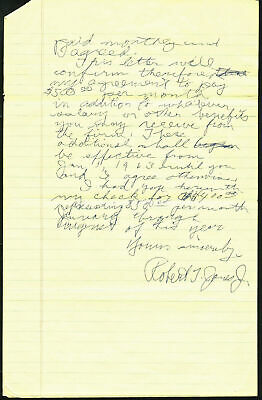 paid monthly and
agreed.
This letter will
confirm therefore,
my agreement to pay
per month
in addition to whatever
salary or other benefits
you may receive from
the firm. These
additional shall
be effective from
Jan 1, until you
and I agree otherwise.
I hand you herewith
my check for
representing per month
January through
of this year
Yours sincerely,
Robert T. Jones Jr.